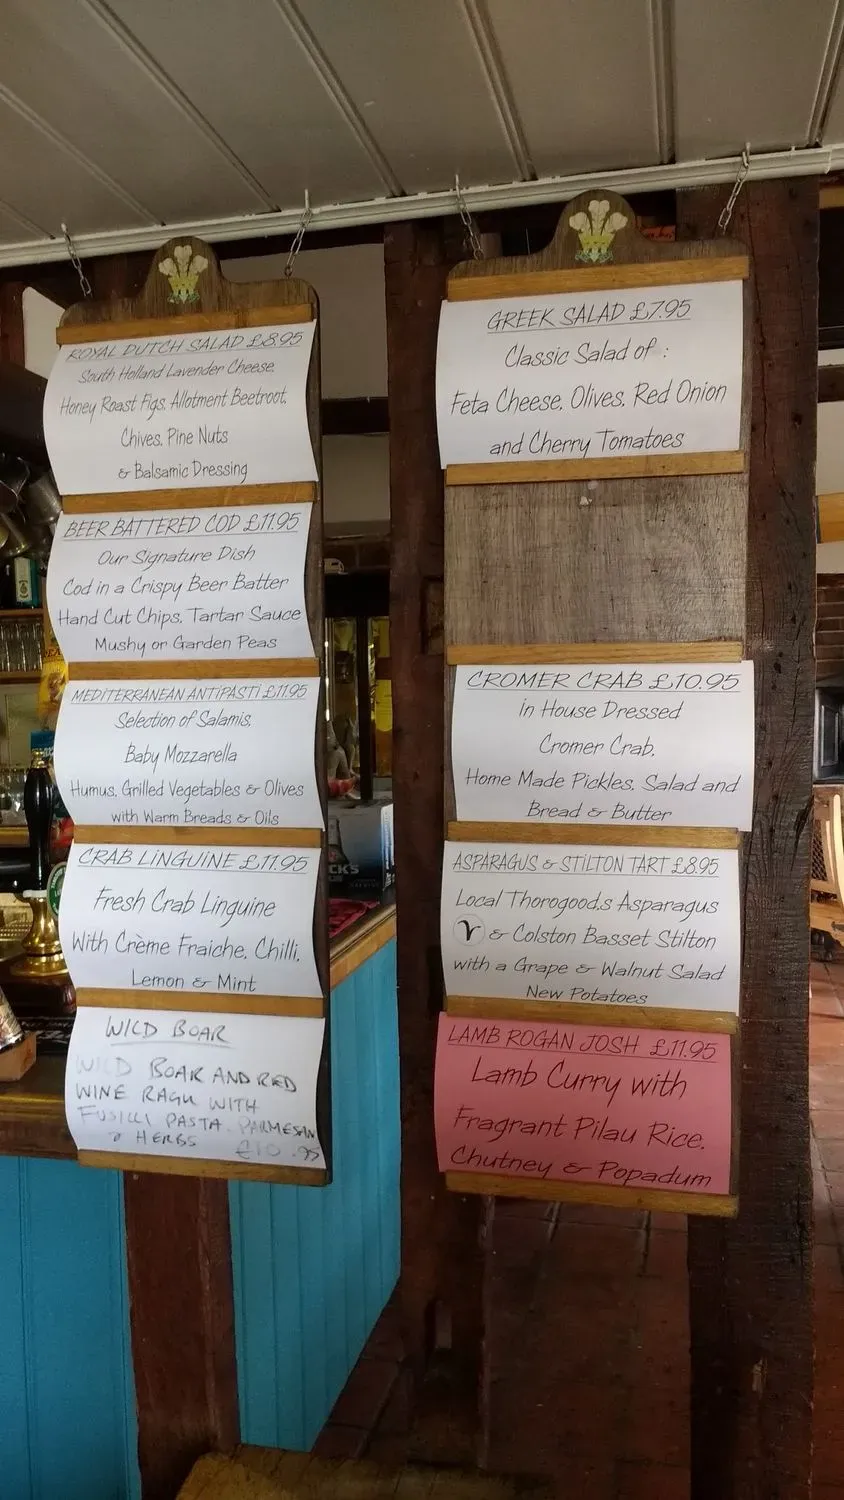 ROYAL DUTCH SALAD £8.95
South Holland Lavender Cheese,
Honey Roast Figs, Allotment Beetroot,
Chives, Pine Nuts
& Balsamic Dressing
BEER BATTERED COD £11.95
Our Signature Dish
Cod in a Crispy Beer Batter
Hand Cut Chips, Tartar Sauce
Mushy or Garden Peas
MEDITERRANEAN ANTiPASTi £11.95
Selection of Salamis,
Baby Mozzarella
Humus, Grilled Vegetables & Olives
with Warm Breads & Oils
CRAB LiNGUiNE £11.95
Fresh Crab Linguine
With Crème Fraiche, Chilli,
Lemon & Mint
WILD BOAR
WILD BOAR AND RED
WINE RAGU WITH
FUSILLI PASTA. PARMESAN
& HERBS £10.95
GREEK SALAD £7.95
Classic Salad of :
Feta Cheese, Olives, Red Onion
and Cherry Tomatoes
CROMER CRAB £10.95
in House Dressed
Cromer Crab,
Home Made Pickles, Salad and
Bread & Butter
ASPARAGUS & STILTON TART £8.95
Local Thorogoods Asparagus
V & Colston Basset Stilton
with a Grape & Walnut Salad
New Potatoes
LAMB ROGAN JOSH £11.95
Lamb Curry with
Fragrant Pilau Rice,
Chutney & Popadum